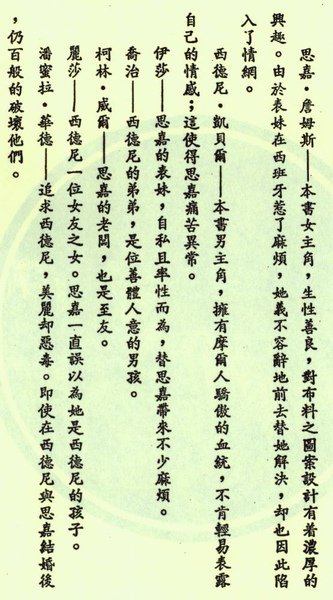 思嘉‧詹姆斯——本書女主角，生性善良，對布料之圖案設計有着濃厚的
興趣。由於表妹在西班牙惹了麻煩，她義不容辭地前去替她解決，却也因此陷
入了情網。
西德尼‧凱貝爾——本書男主角，擁有摩爾人驕傲的血統，不肯輕易表露
自己的情感；這使得思嘉痛苦異常。
伊莎——思嘉的表妹，自私且率性而為，替思嘉帶來不少麻煩。
喬治——西德尼的弟弟，是位善體人意的男孩。
柯林‧威爾——思嘉的老闆，也是至友。
麗莎——西德尼一位女友之女。思嘉一直誤以為她是西德尼的孩子。
潘蜜拉‧華德——追求西德尼，美麗却惡毒。即使在西德尼與思嘉結婚後
，仍百般的破壞他們。